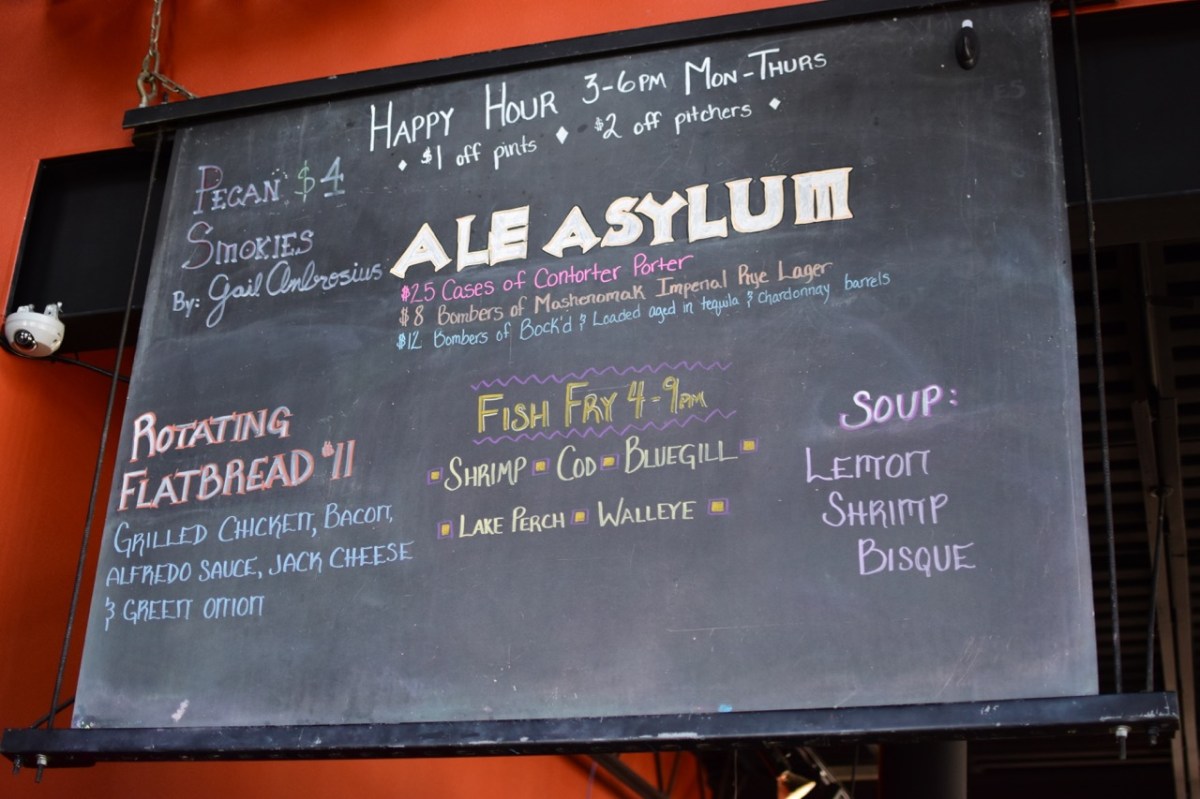 Happy Hour 3-6pm Mon-Thurs
$1 off pints $2 off pitchers
Pecan $4
Smokies
By: Gail Ambrosius
ALE ASYLUM
$25 Cases of Contorter Porter
$8 Bombers of Mashenomak Imperial Rye Lager
$12 Bombers of Bock'd & Loaded aged in tequila & Chardonnay barrels
Rotating
Flatbread $11
Grilled Chicken, Bacon,
Alfredo Sauce, Jack Cheese
& Green Onion
Fish Fry 4-9pm
Shrimp Cod Bluegill
Lake Perch Walleye
Soup:
Lemon
Shrimp
Bisque